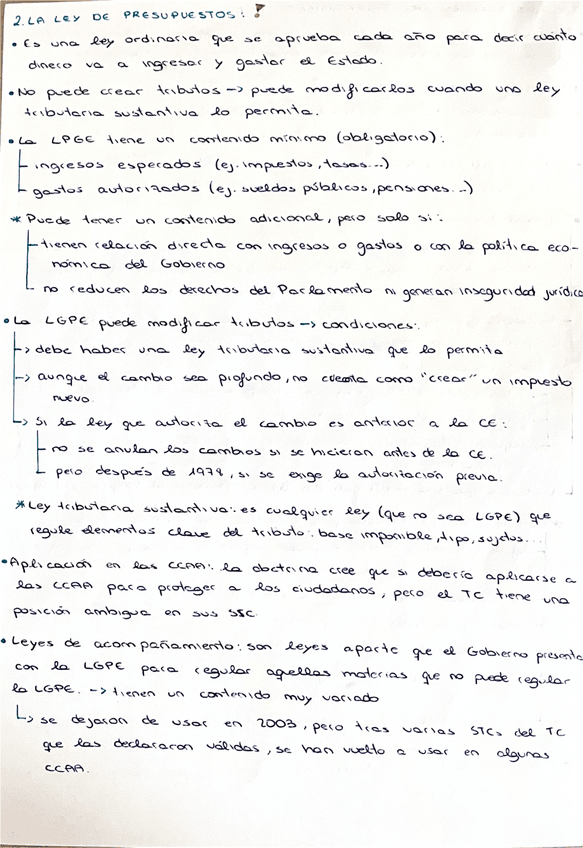 2. LA LEY DE PRESUPUESTOS: !
• Es una ley ordinaria que se aprueba cada año para decir cuánto
dinero va a ingresar y gastar el Estado.
• No puede crear tributos -> puede modificarlos cuando una ley
tributaria sustantiva lo permita.
• La LPGE tiene un contenido mínimo (obligatorio):
ingresos esperados (ej. impuestos, tasas...)
gastos autorizados (ej. sueldos públicos, pensiones...)
* Puede tener un contenido adicional, pero solo si:
tienen relación directa con ingresos o gastos o con la política eco-
nómica del Gobierno
no reducen los derechos del Parlamento ni generan inseguridad jurídica
• La LGPE puede modificar tributos -> condiciones:
-> debe haber una ley tributaria sustantiva que lo permita
-> aunque el cambio sea profundo, no cuenta como "crear" un impuesto
nuevo.
-> Si la ley que autoriza el cambio es anterior a la CE:
no se anulan los cambios si se hicieran antes de la CE.
pero después de 1978, si se exige la autorización previa.
* Ley tributaria sustantiva: es cualquier ley (que no sea LGPE) que
regule elementos clave del tributo: base imponible, tipo, sujetos...
• Aplicación en las CCAA: la doctrina cree que si debería aplicarse a
las CCAA para proteger a los ciudadanos, pero el TC tiene una
posición ambigua en sus
• Leyes de acompañamiento: son leyes aparte que el Gobierno presenta
con la LGPE para regular aquellas materias que no puede regular
la LGPE. -> tienen un contenido muy variado
-> se dejaron de usar en 2003, pero tras varias STCs del TC
que las declararon válidas, se han vuelto a usar en algunas
CCAA.